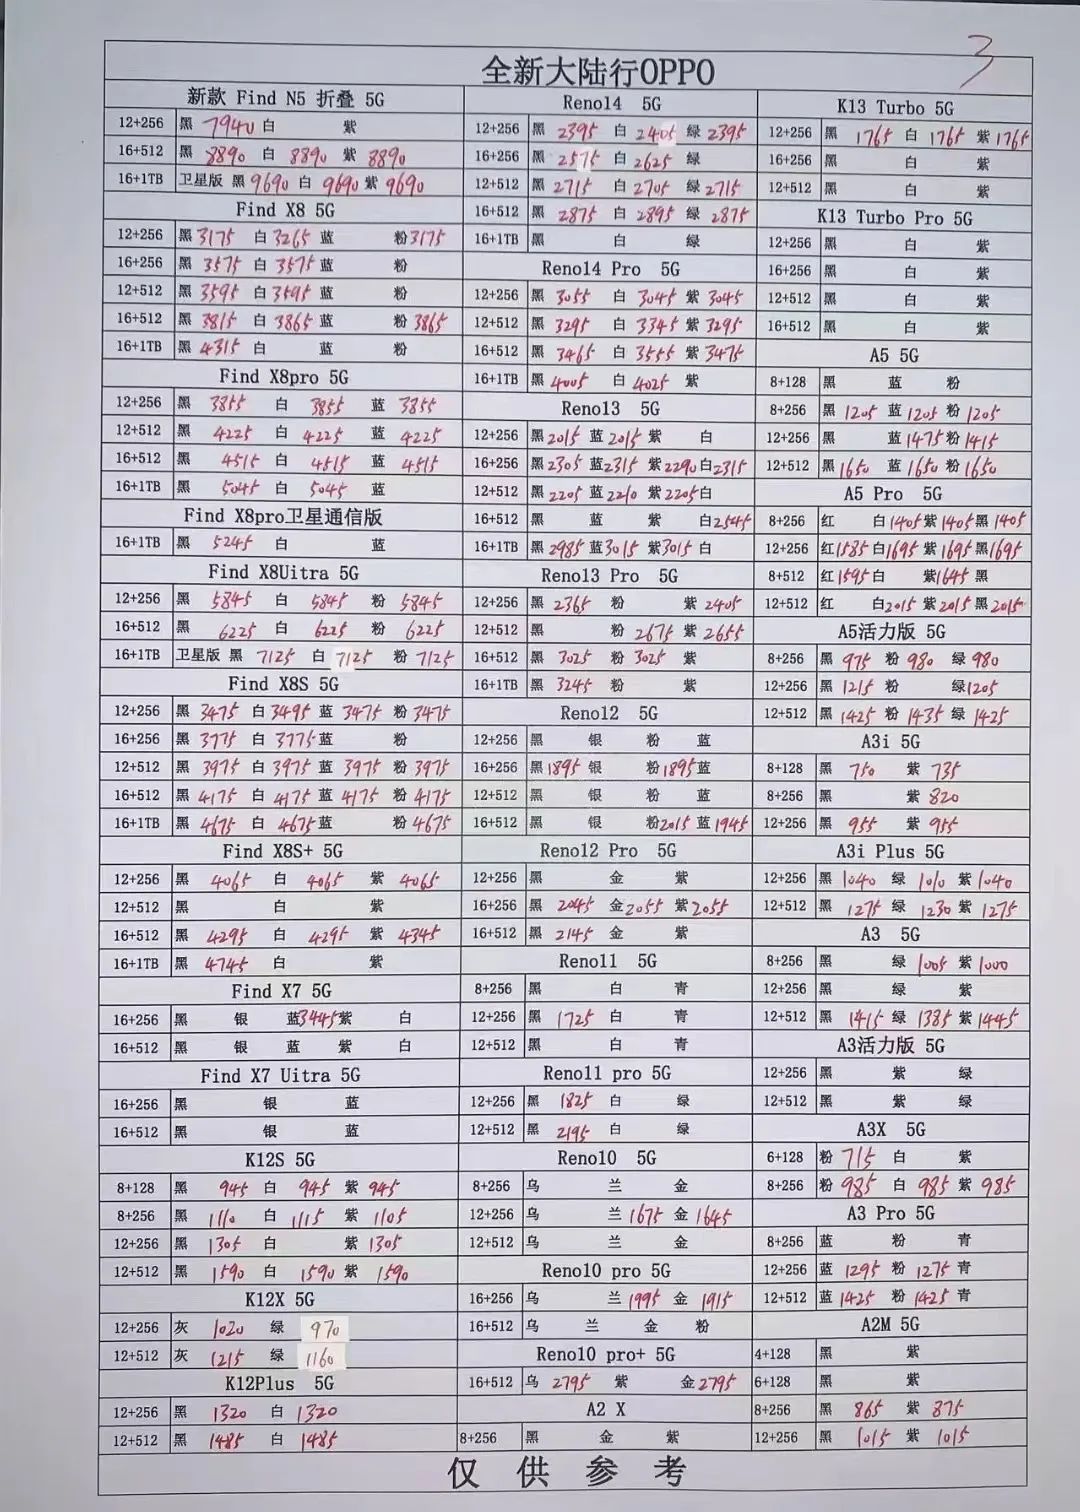 3
全新大陆行OPPO
新款 Find N5 折叠 5G
12+256 黑 7940 白 紫
16+512 黑 8890 白 8890 紫 8890
16+1TB 卫星版 黑 9690 白 9690 紫 9690
Find X8 5G
12+256 黑 3175 白 3265 蓝 粉 3175
16+256 黑 3575 白 3575 蓝 粉
12+512 黑 3595 白 3595 蓝 粉
16+512 黑 3815 白 3865 蓝 粉 3865
16+1TB 黑 4315 白 蓝 粉
Find X8pro 5G
12+256 黑 3855 白 3855 蓝 3855
12+512 黑 4225 白 4225 蓝 4225
16+512 黑 4515 白 4515 蓝 4515
16+1TB 黑 5045 白 5045 蓝
Find X8pro卫星通信版
16+1TB 黑 5245 白 蓝
Find X8Uitra 5G
12+256 黑 5845 白 5845 粉 5845
16+512 黑 6225 白 6225 粉 6225
16+1TB 卫星版 黑 7125 白 7125 粉 7125
Find X8S 5G
12+256 黑 3475 白 3495 蓝 3475 粉 3475
16+256 黑 3775 白 3775 蓝 粉
12+512 黑 3975 白 3975 蓝 3975 粉 3975
16+512 黑 4175 白 4175 蓝 4175 粉 4175
16+1TB 黑 4675 白 4675 蓝 粉 4675
Find X8S+ 5G
12+256 黑 4065 白 4065 紫 4065
12+512 黑 白 紫
16+512 黑 4295 白 4295 紫 4345
16+1TB 黑 4745 白 紫
Find X7 5G
16+256 黑 银 蓝 3445 紫 白
16+512 黑 银 蓝 紫 白
Find X7 Uitra 5G
16+256 黑 银 蓝
16+512 黑 银 蓝
K12S 5G
8+128 黑 945 白 945 紫 945
8+256 黑 1110 白 1115 紫 1105
12+256 黑 1305 白 紫 1305
12+512 黑 1590 白 1590 紫 1590
K12X 5G
12+256 灰 1020 绿 970
12+512 灰 1215 绿 1160
K12Plus 5G
12+256 黑 1320 白 1320
12+512 黑 1485 白 1485
Reno14 5G
12+256 黑 2395 白 2405 绿 2395
16+256 黑 2575 白 2625 绿
12+512 黑 2715 白 2705 绿 2715
16+512 黑 2875 白 2895 绿 2875
16+1TB 黑 白 绿
Reno14 Pro 5G
12+256 黑 3055 白 3045 紫 3045
12+512 黑 3295 白 3345 紫 3295
16+512 黑 3465 白 3555 紫 3475
16+1TB 黑 4005 白 4025 紫
Reno13 5G
12+256 黑 2015 蓝 2015 紫 白
16+256 黑 2305 蓝 2315 紫 2290 白 2315
12+512 黑 2205 蓝 2210 紫 2205 白
16+512 黑 蓝 紫 白 2545
16+1TB 黑 2985 蓝 3015 紫 3015 白
Reno13 Pro 5G
12+256 黑 2365 粉 紫 2405
12+512 黑 粉 2675 紫 2655
16+512 黑 3025 粉 3025 紫
16+1TB 黑 3245 粉 紫
Reno12 5G
12+256 黑 银 粉 蓝
16+256 黑 1895 银 粉 1895 蓝
12+512 黑 银 粉 蓝
16+512 黑 银 粉 2015 蓝 1945
Reno12 Pro 5G
12+256 黑 金 紫
16+256 黑 2045 金 2055 紫 2055
16+512 黑 2145 金 紫
Reno11 5G
8+256 黑 白 青
12+256 黑 1725 白 青
12+512 黑 白 青
Reno11 pro 5G
12+256 黑 1825 白 绿
12+512 黑 2195 白 绿
Reno10 5G
8+256 乌 兰 金
12+256 乌 兰 1675 金 1645
12+512 乌 兰 金
Reno10 pro 5G
16+256 乌 兰 1995 金 1915
16+512 乌 兰 金 粉
Reno10 pro+ 5G
16+512 乌 2795 紫 金 2795
A2 X
8+256 黑 金 紫
K13 Turbo 5G
12+256 黑 1765 白 1765 紫 1765
16+256 黑 白 紫
12+512 黑 白 紫
K13 Turbo Pro 5G
12+256 黑 白 紫
16+256 黑 白 紫
12+512 黑 白 紫
16+512 黑 白 紫
A5 5G
8+128 黑 蓝 粉
8+256 黑 1205 蓝 1205 粉 1205
12+256 黑 蓝 1475 粉 1415
12+512 黑 1650 蓝 1650 粉 1650
A5 Pro 5G
8+256 红 白 1405 紫 1405 黑 1405
12+256 红 1585 白 1695 紫 1695 黑 1695
8+512 红 1595 白 紫 1645 黑
12+512 红 白 2015 紫 2015 黑 2015
A5活力版 5G
8+256 黑 975 粉 980 绿 980
12+256 黑 1215 粉 绿 1205
12+512 黑 1425 粉 1435 绿 1425
A3i 5G
8+128 黑 750 紫 735
8+256 黑 紫 820
12+256 黑 955 紫 955
A3i Plus 5G
12+256 黑 1040 绿 1010 紫 1040
12+512 黑 1275 绿 1230 紫 1275
A3 5G
8+256 黑 绿 1005 紫 1000
12+256 黑 绿 紫
12+512 黑 1415 绿 1385 紫 1445
A3活力版 5G
12+256 黑 紫 绿
12+512 黑 紫 绿
A3X 5G
6+128 粉 715 白 紫
8+256 粉 985 白 985 紫 985
A3 Pro 5G
8+256 蓝 粉 青
12+256 蓝 1295 粉 1275 青
12+512 蓝 1425 粉 1425 青
A2M 5G
4+128 黑 紫
6+128 黑 紫
8+256 黑 865 紫 875
12+256 黑 1015 紫 1015
仅供参考